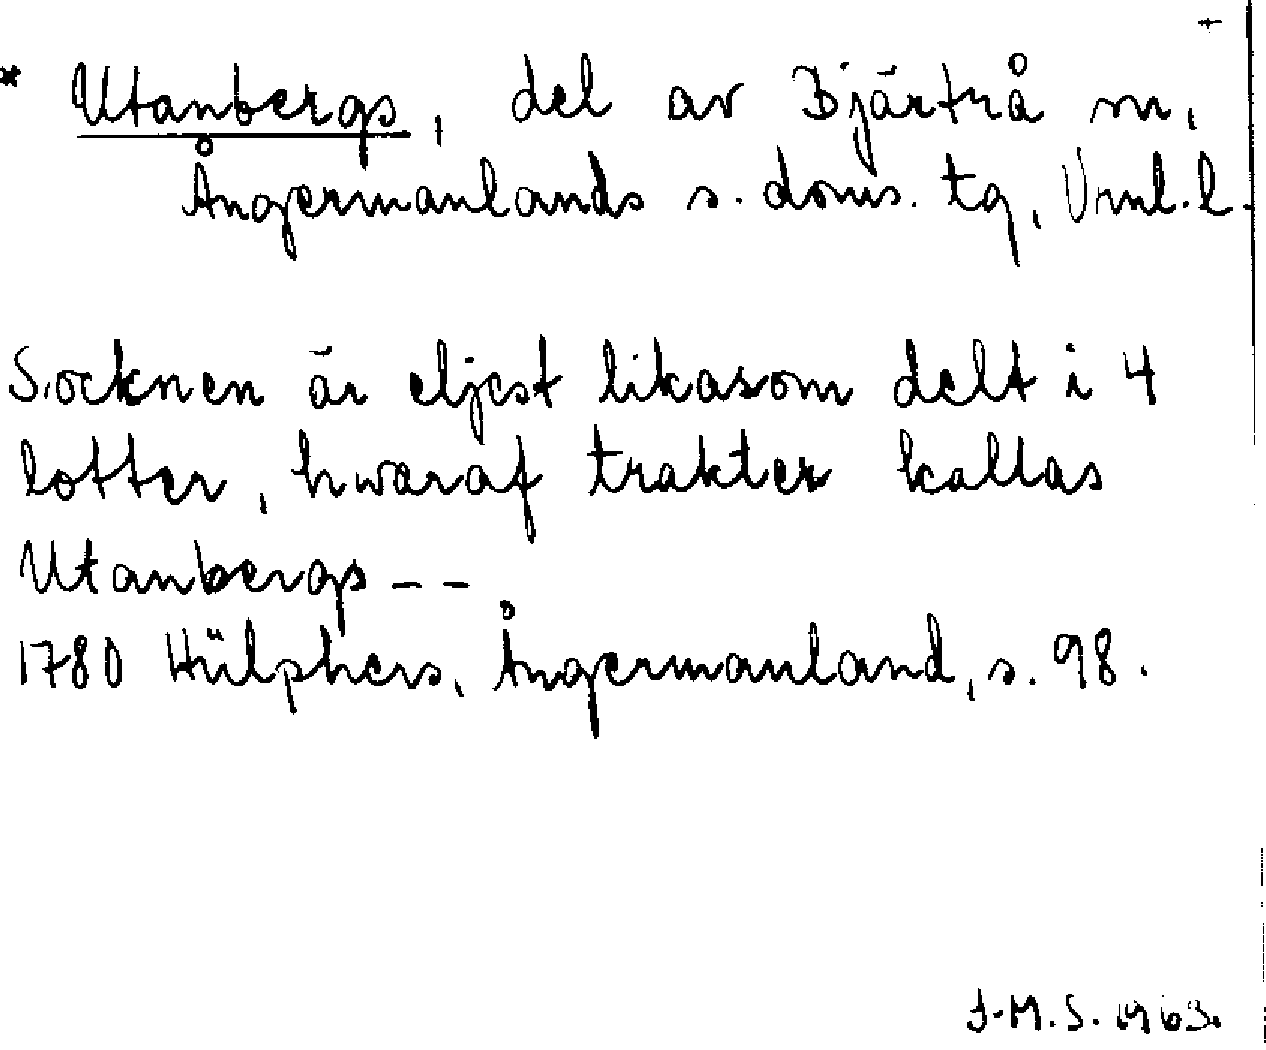 +
* Utanbergs, del av Bjärtrå sn,
Ångermanlands s. doms. tg, Vrnl.l.
Socknen är eljest likasom delt i 4
lotter, hwaraf trakter kallas
Utanbergs --
1780 Hülphers, Ångermanland, s. 98.
J.M.S. 1963.